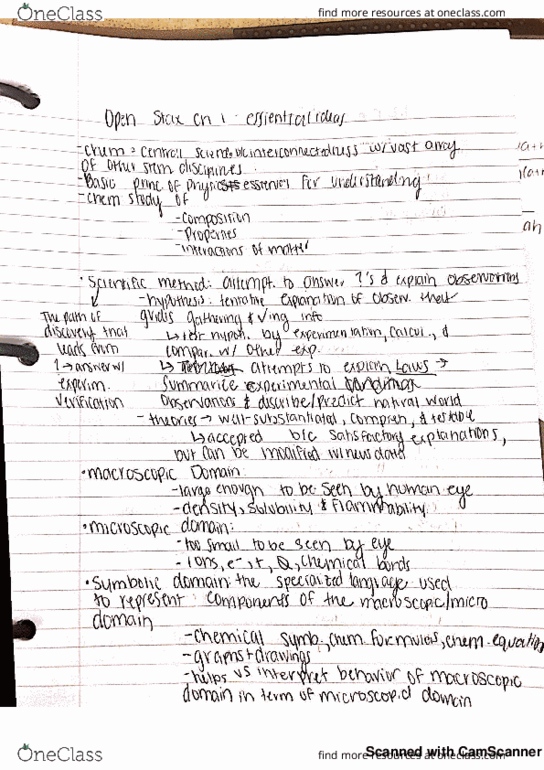 OneClass
find more resources at oneclass.com
Open Stax Ch 1 essentical ideas
-Chem = central science b/c interconnectedness w/ vast array
of other stem disciplines
-Basic princ of physics essential for understanding
-chem study of
-composition
-Properties
-interactions of matter
• Scientific method: attempt to answer ?'s & explain observations
-hypothesis: tentative explanation of observ. that
guides gathering & √ing info
↳ test hypoth. by experimentation, calcul., &
compar. w/ other exp.
↳ attempts to explain Laws →
Summarize experimental
observations & describe/predict natural world
The path of
discovery that
leads from
? → answer w/
experim.
verification
- theories → well-substantiated, compreh, & testable
↳ accepted b/c satisfactory explanations,
but can be modified w/ new data
• macroscopic Domain:
-large enough to be seen by human eye
-density, solubility & Flammability
• microscopic domain:
-too small to be seen by eye
- Ions, e-, chemical bonds
• Symbolic domain: the specialized language used
to represent components of the macroscopic/micro
domain
-chemical symb, chem formulas, chem. equation
-graphs + drawings
-helps us interpret behavior of macroscopic
domain in term of microscopic domain
OneClass
find more resources at oneclass.com
Scanned with CamScanner